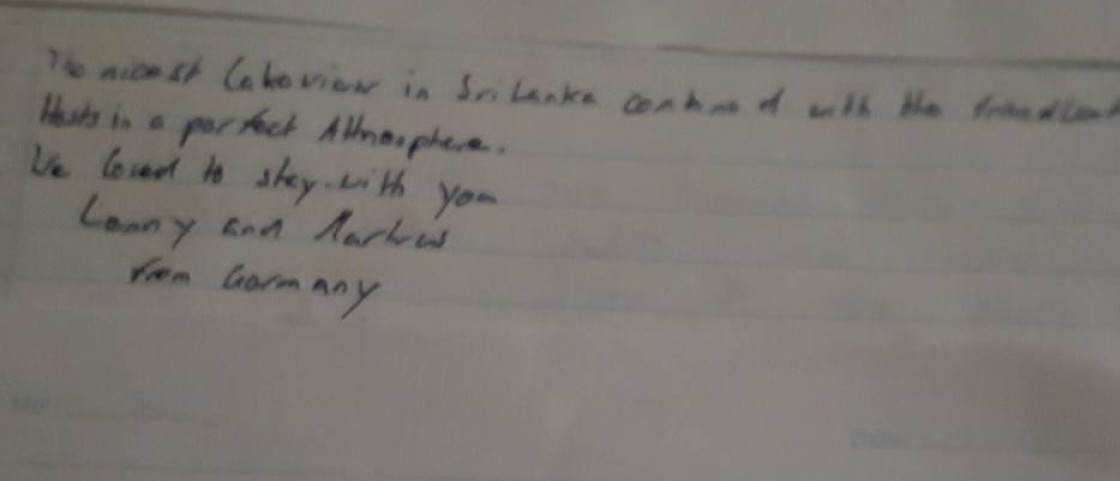 The nicest Lakeview in Sri Lanka combined with the
Hosts in a perfect Atmosphere.
We loved to stay with you
Lenny and Markus
from Germany